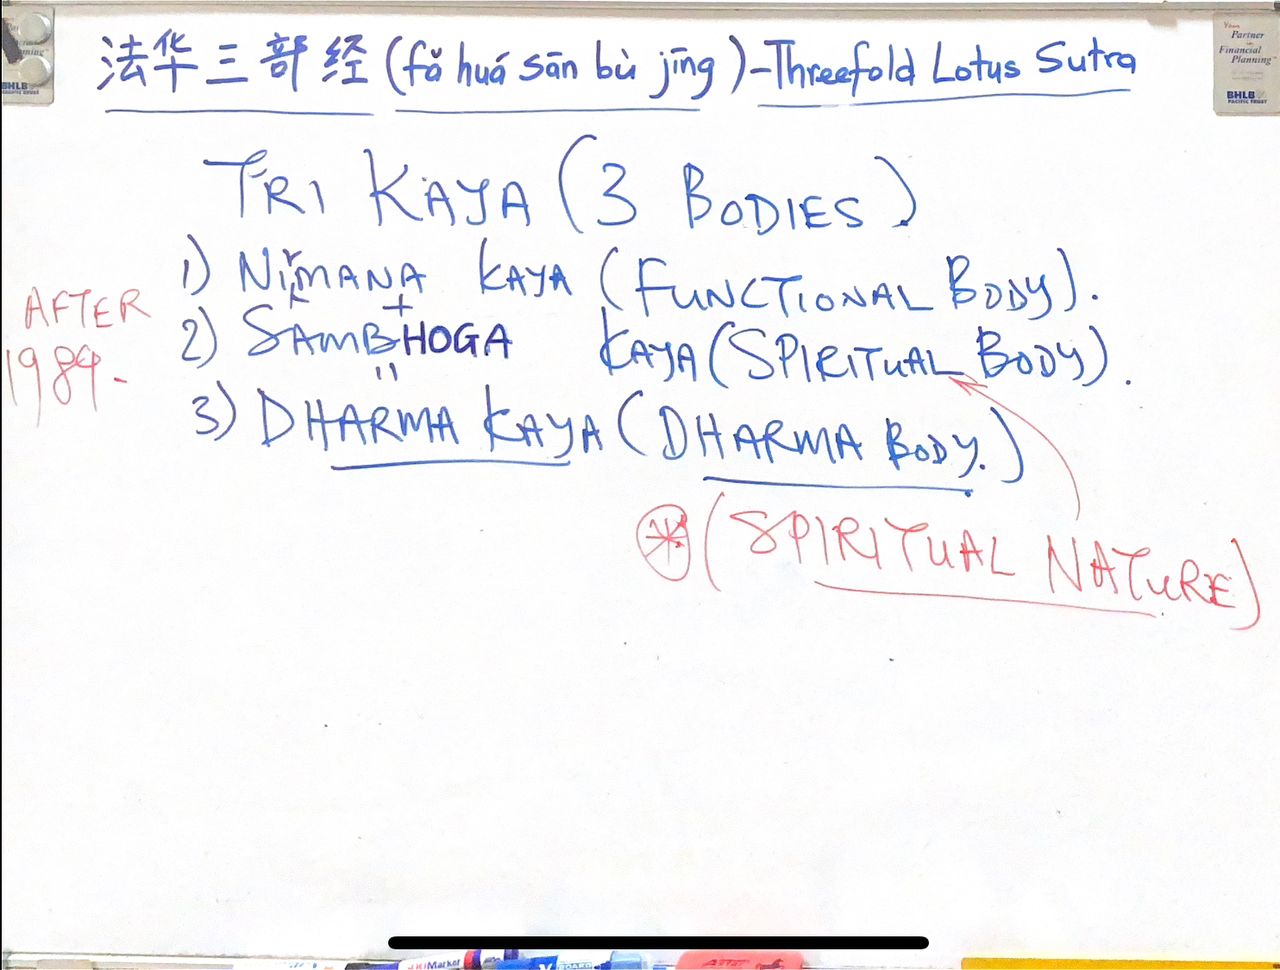 法华三部经 (fǎ huá sān bù jīng) - Threefold Lotus Sutra
Your Partner in Financial Planning"
BHLB
PACIFIC TRUST
BHLB
TRI KAYA (3 BODIES)
1) NIRMANA KAYA (FUNCTIONAL BODY).
+
2) SAMBHOGA KAYA (SPIRITUAL BODY).
=
3) DHARMA KAYA (DHARMA BODY.)
AFTER
1989.
(SPIRITUAL NATURE)
Marker
BOARD